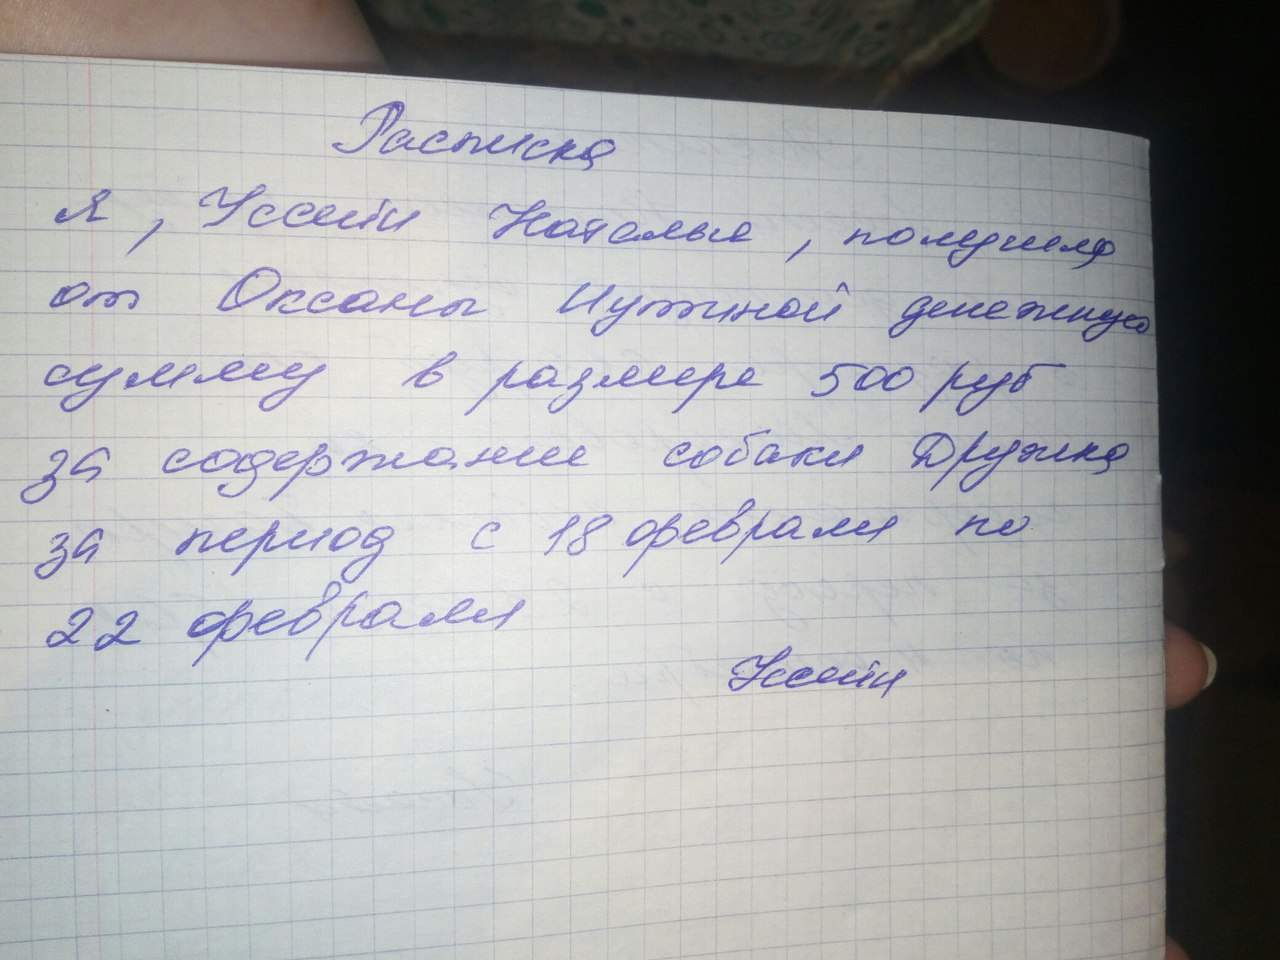 Расписка
Я, Уссати Наталья, получила
от Оксаны Путиной денежную
сумму в размере 500 руб
за содержание собаки Дружка
за период с 18 февраля по
22 февраля